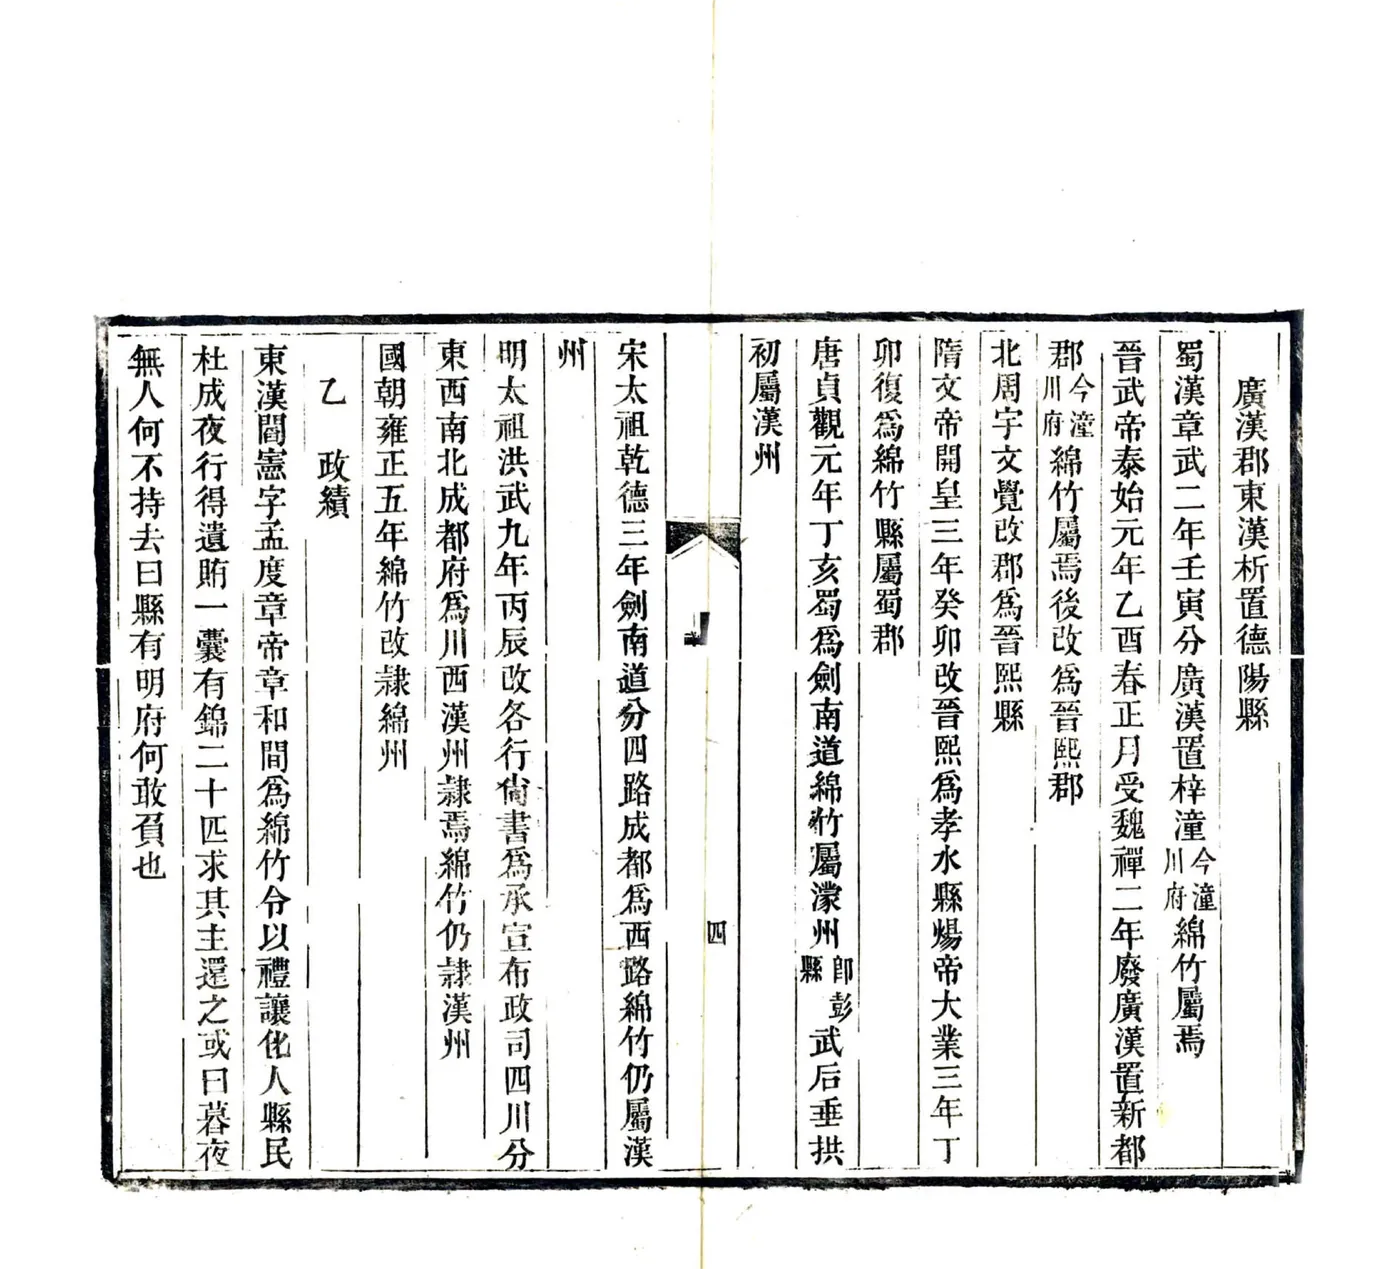 廣漢郡東漢析置德陽縣
蜀漢章武二年壬寅分廣漢置梓潼今潼川府綿竹屬焉
晉武帝泰始元年乙酉春正月受魏禪二年廢廣漢置新都
郡今潼川府綿竹屬焉後改爲晉熙郡
北周宇文覺改郡爲晉熙縣
隋文帝開皇三年癸卯改晉熙爲孝水縣煬帝大業三年丁
卯復爲綿竹縣屬蜀郡
唐貞觀元年丁亥蜀爲劍南道綿竹屬濛州卽彭縣武后垂拱
初屬漢州
四
宋太祖乾德三年劍南道分四路成都爲西路綿竹仍屬漢
州
明太祖洪武九年丙辰改各行尙書爲承宣布政司四川分
東西南北成都府爲川西漢州隷焉綿竹仍隷漢州
國朝雍正五年綿竹改隷綿州
乙 政績
東漢閻憲字孟度章帝章和間爲綿竹令以禮讓化人縣民
杜成夜行得遺賄一囊有錦二十匹求其主還之或曰暮夜
無人何不持去曰縣有明府何敢負也